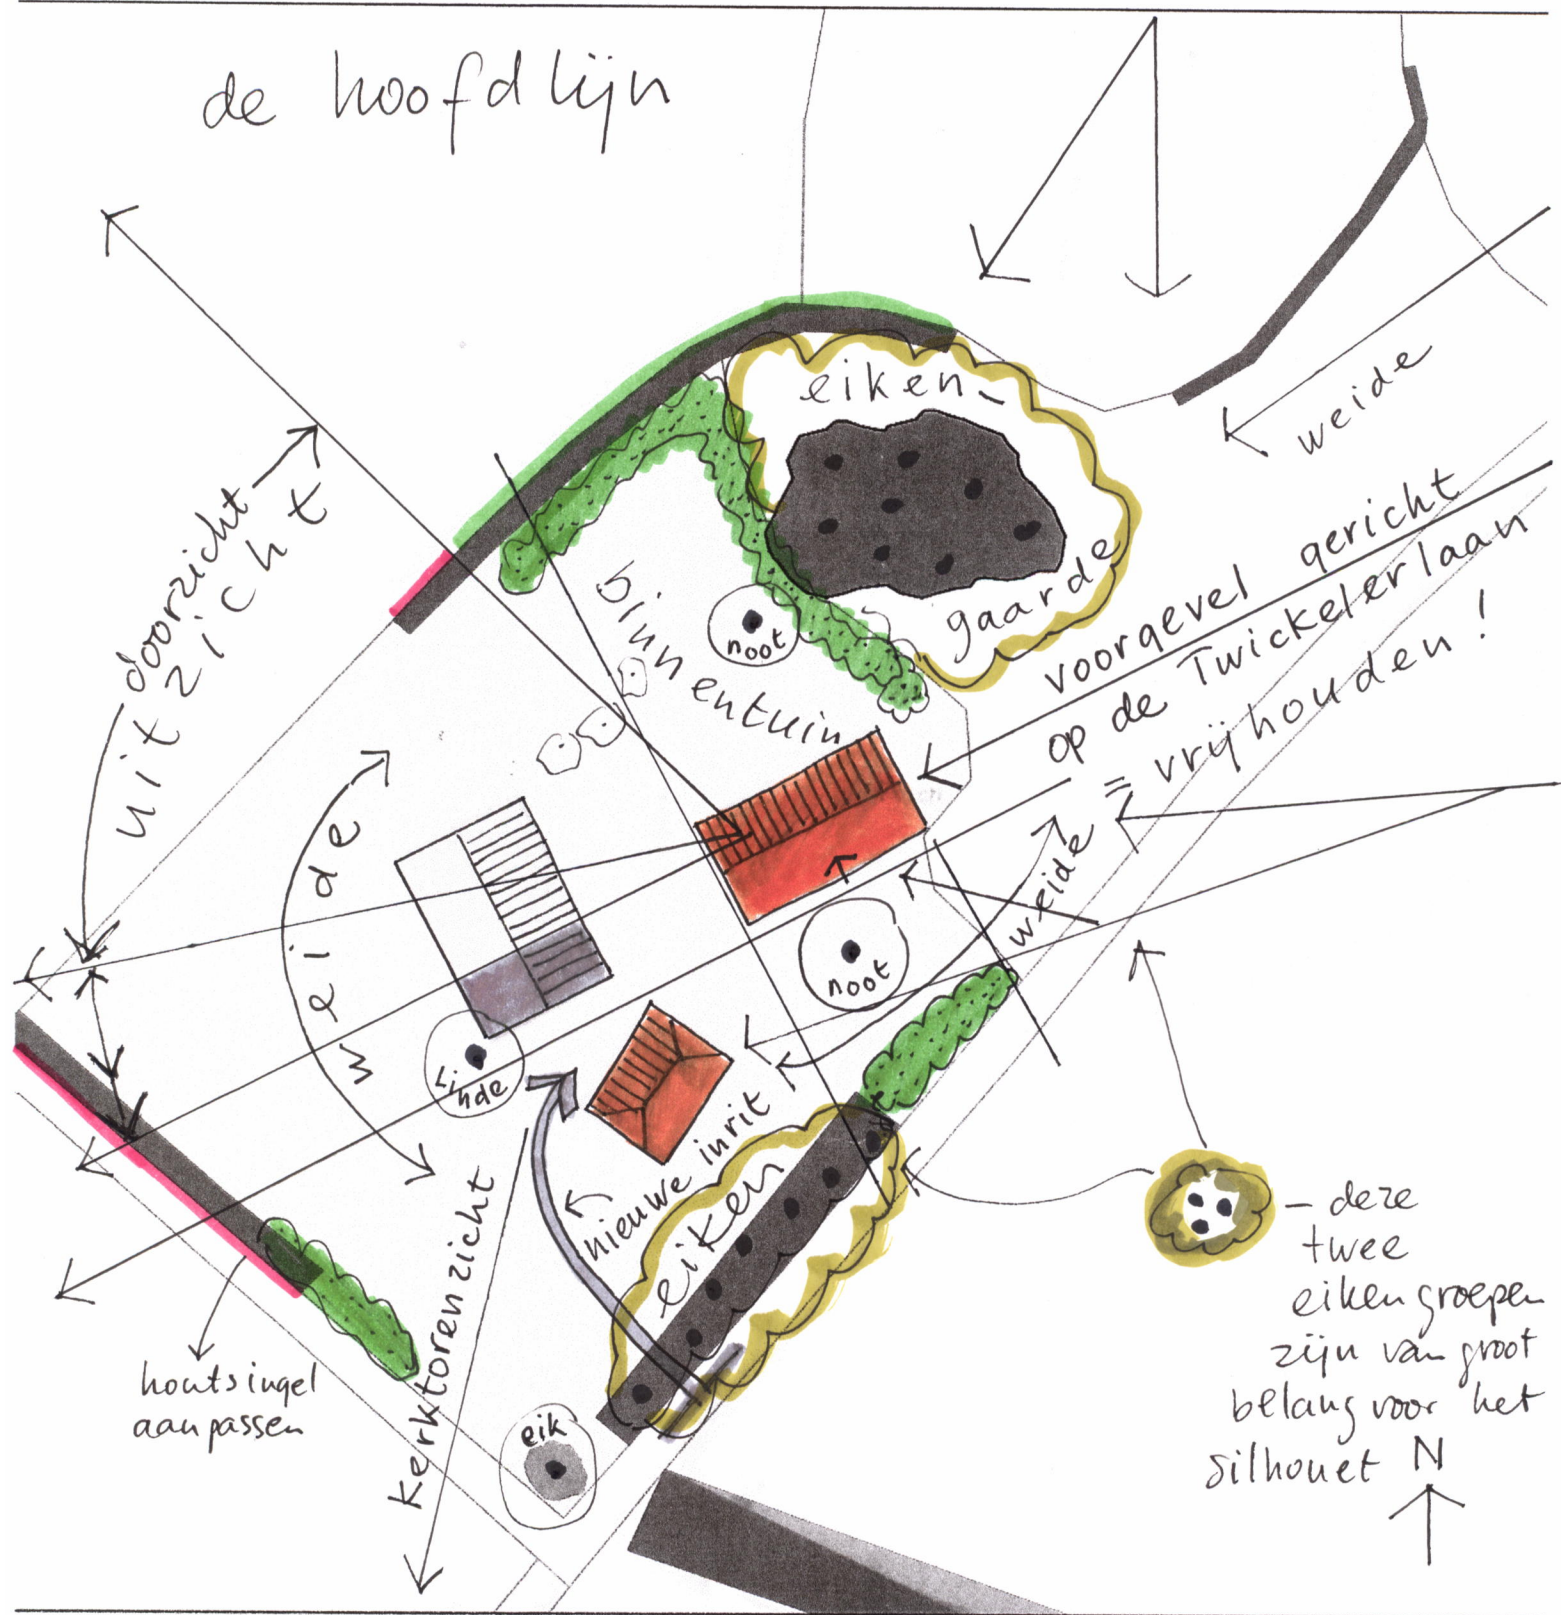 de hoofdlijn
eiken-
gaarde
weide
doorzicht
uitzicht
binnentuin
noot
voorgevel gericht
op de Twickelerlaan
= vrijhouden!
weide
weide
noot
Linde
nieuwe inrit
eiken
kerktorenzicht
houtsingel
aanpassen
eik
- deze
twee
eikengroepen
zijn van groot
belang voor het
silhouet
N